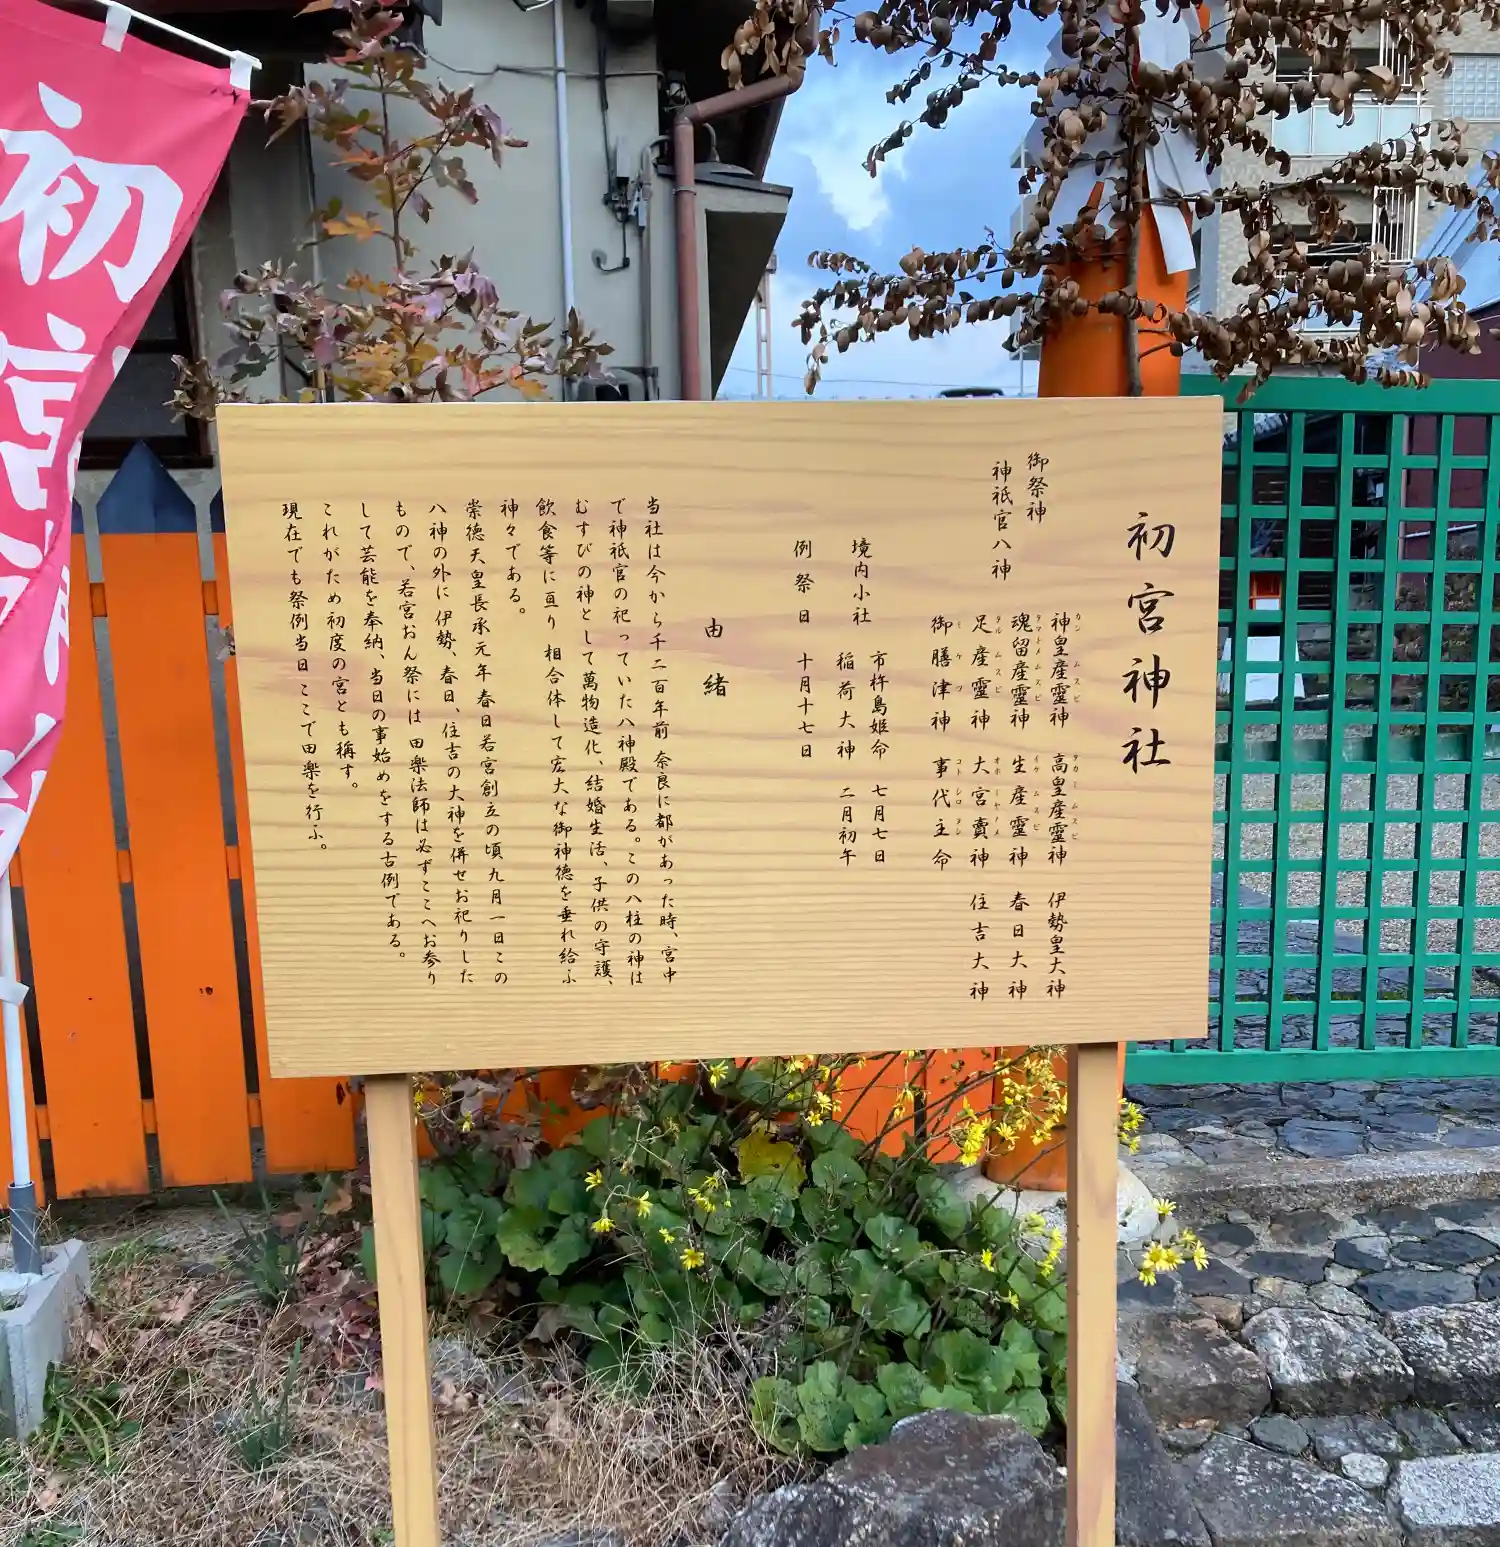 初宮神社
御祭神
神祇官八神
神皇産霊神 高皇産霊神 伊勢皇大神
カン ムスビ タカーム スビ
魂留産霊神 生産霊神 春日大神
タマトメムスビ イケ ムスビ
足産霊神 大宮賣神 住吉大神
タル ムスビ オホーヤノメ
御膳津神 事代主命
ミ ケツ コトシロヌシ
境内小社 市杵島姫命 七月七日
稲荷大神 二月初午
例祭日 十月十七日
由緒
当社は今から千二百年前 奈良に都があった時、宮中
で神祇官の祀っていた八神殿である。この八柱の神は
むすびの神として萬物造化、結婚生活、子供の守護、
飲食等に亘り 相合体して宏大な御神徳を垂れ給ふ
神々である。
崇徳天皇長承元年 春日若宮創立の頃九月一日この
八神の外に 伊勢、春日、住吉の大神を併せお祀りした
もので、若宮おん祭には 田楽法師は必ずここへお参り
して芸能を奉納、当日の事始めをする古例である。
これがため初度の宮とも稱す。
現在でも祭例当日 ここで田楽を行ふ。
初宮神社